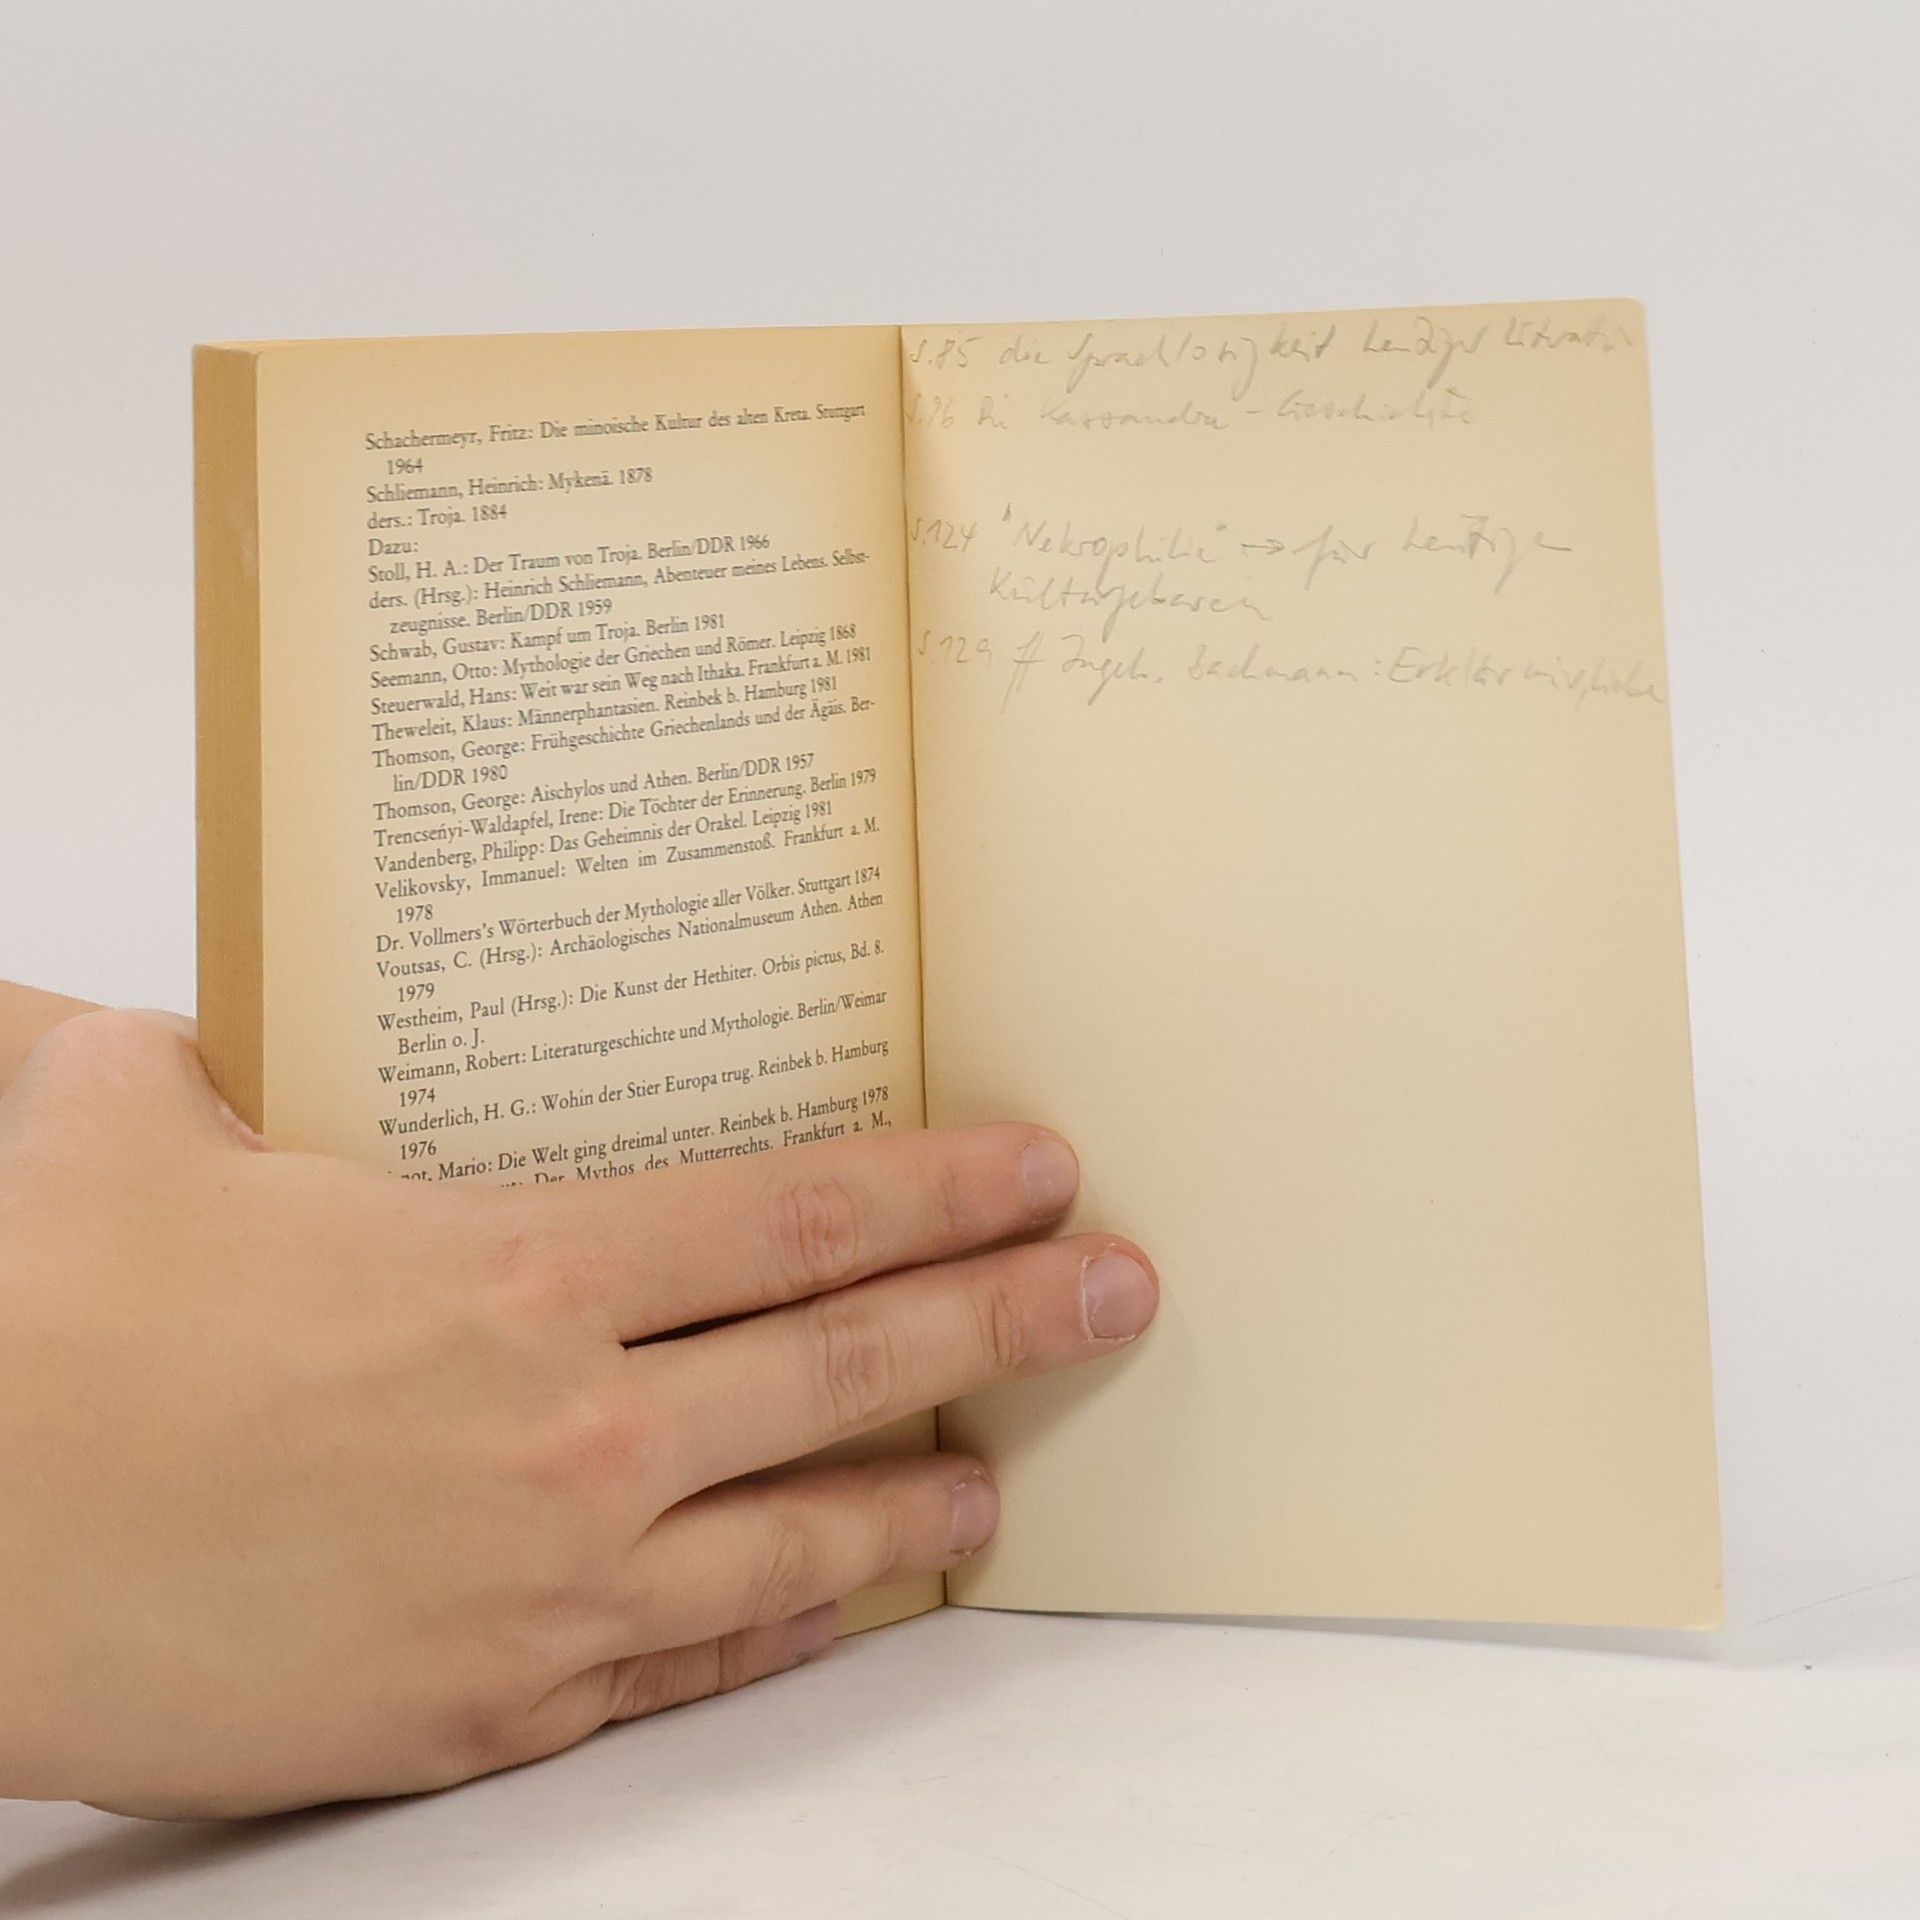 Schachermeyr, Fritz: Die minoische Kultur des alten Kreta. Stuttgart
1964
Schliemann, Heinrich: Mykenä. 1878
ders.: Troja. 1884
Dazu:
Stoll, H. A.: Der Traum von Troja. Berlin/DDR 1966
ders. (Hrsg.): Heinrich Schliemann, Abenteuer meines Lebens. Selbst-
zeugnisse. Berlin/DDR 1959
Schwab, Gustav: Kampf um Troja. Berlin 1981
Seemann, Otto: Mythologie der Griechen und Römer. Leipzig 1868
Steuerwald, Hans: Weit war sein Weg nach Ithaka. Frankfurt a. M. 1981
Theweleit, Klaus: Männerphantasien. Reinbek b. Hamburg 1981
Thomson, George: Frühgeschichte Griechenlands und der Ägäis. Ber-
lin/DDR 1980
Thomson, George: Aischylos und Athen. Berlin/DDR 1957
Trencsényi-Waldapfel, Irene: Die Töchter der Erinnerung. Berlin 1979
Vandenberg, Philipp: Das Geheimnis der Orakel. Leipzig 1981
Velikovsky, Immanuel: Welten im Zusammenstoß. Frankfurt a. M.
1978
Dr. Vollmers's Wörterbuch der Mythologie aller Völker. Stuttgart 1874
Voutsas, C. (Hrsg.): Archäologisches Nationalmuseum Athen. Athen
1979
Westheim, Paul (Hrsg.): Die Kunst der Hethiter. Orbis pictus, Bd. 8.
Berlin o. J.
Weimann, Robert: Literaturgeschichte und Mythologie. Berlin/Weimar
1974
Wunderlich, H. G.: Wohin der Stier Europa trug. Reinbek b. Hamburg
1976
Mario: Die Welt ging dreimal unter. Reinbek b. Hamburg 1978
Der Mythos des Mutterrechts. Frankfurt a. M.,
S. 85 die Sprachlosigkeit heutiger Literatur
S. 96 Die Kassandra - Geschichte
S. 124 "Nekrophilie" → für heutige
Kulturgebaren
S. 129 ff Ingeb. Bachmann: Erklär mir, Liebe